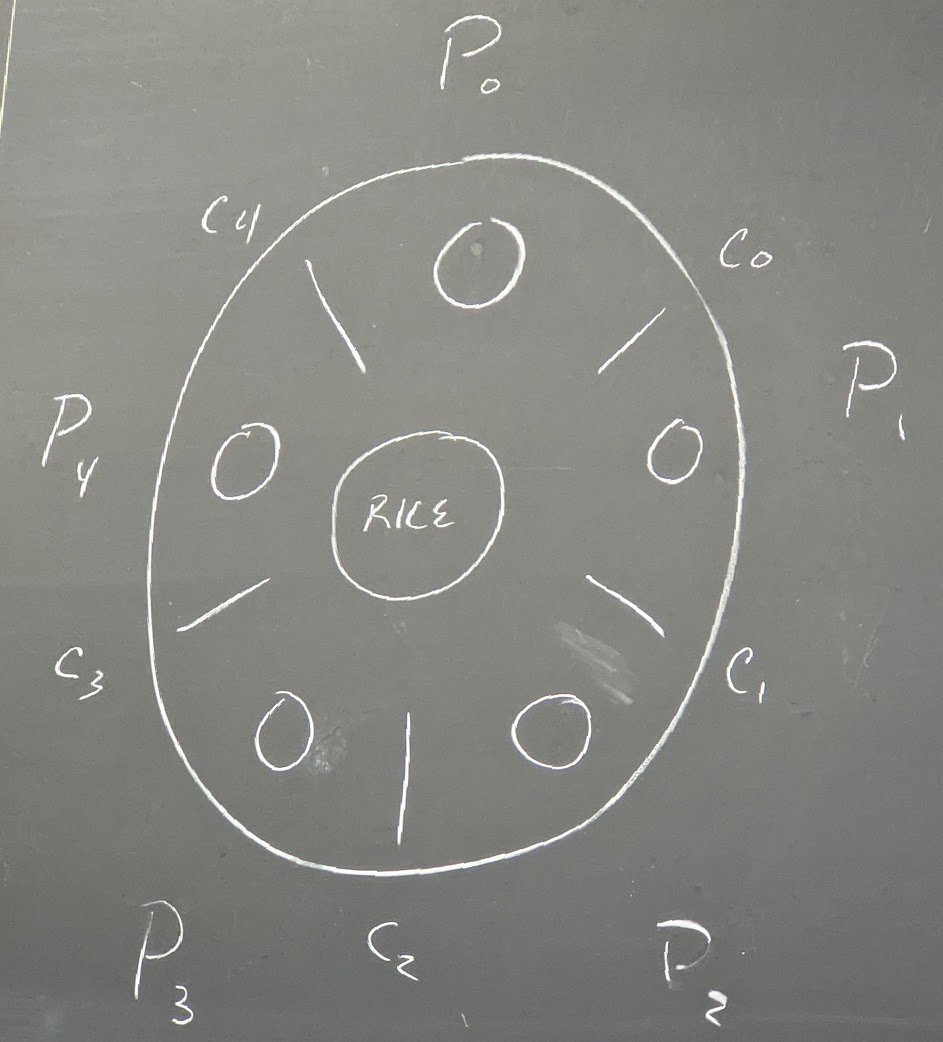 P0
C4
C0
P1
P4
RICE
C3
C1
P3
C2
P2